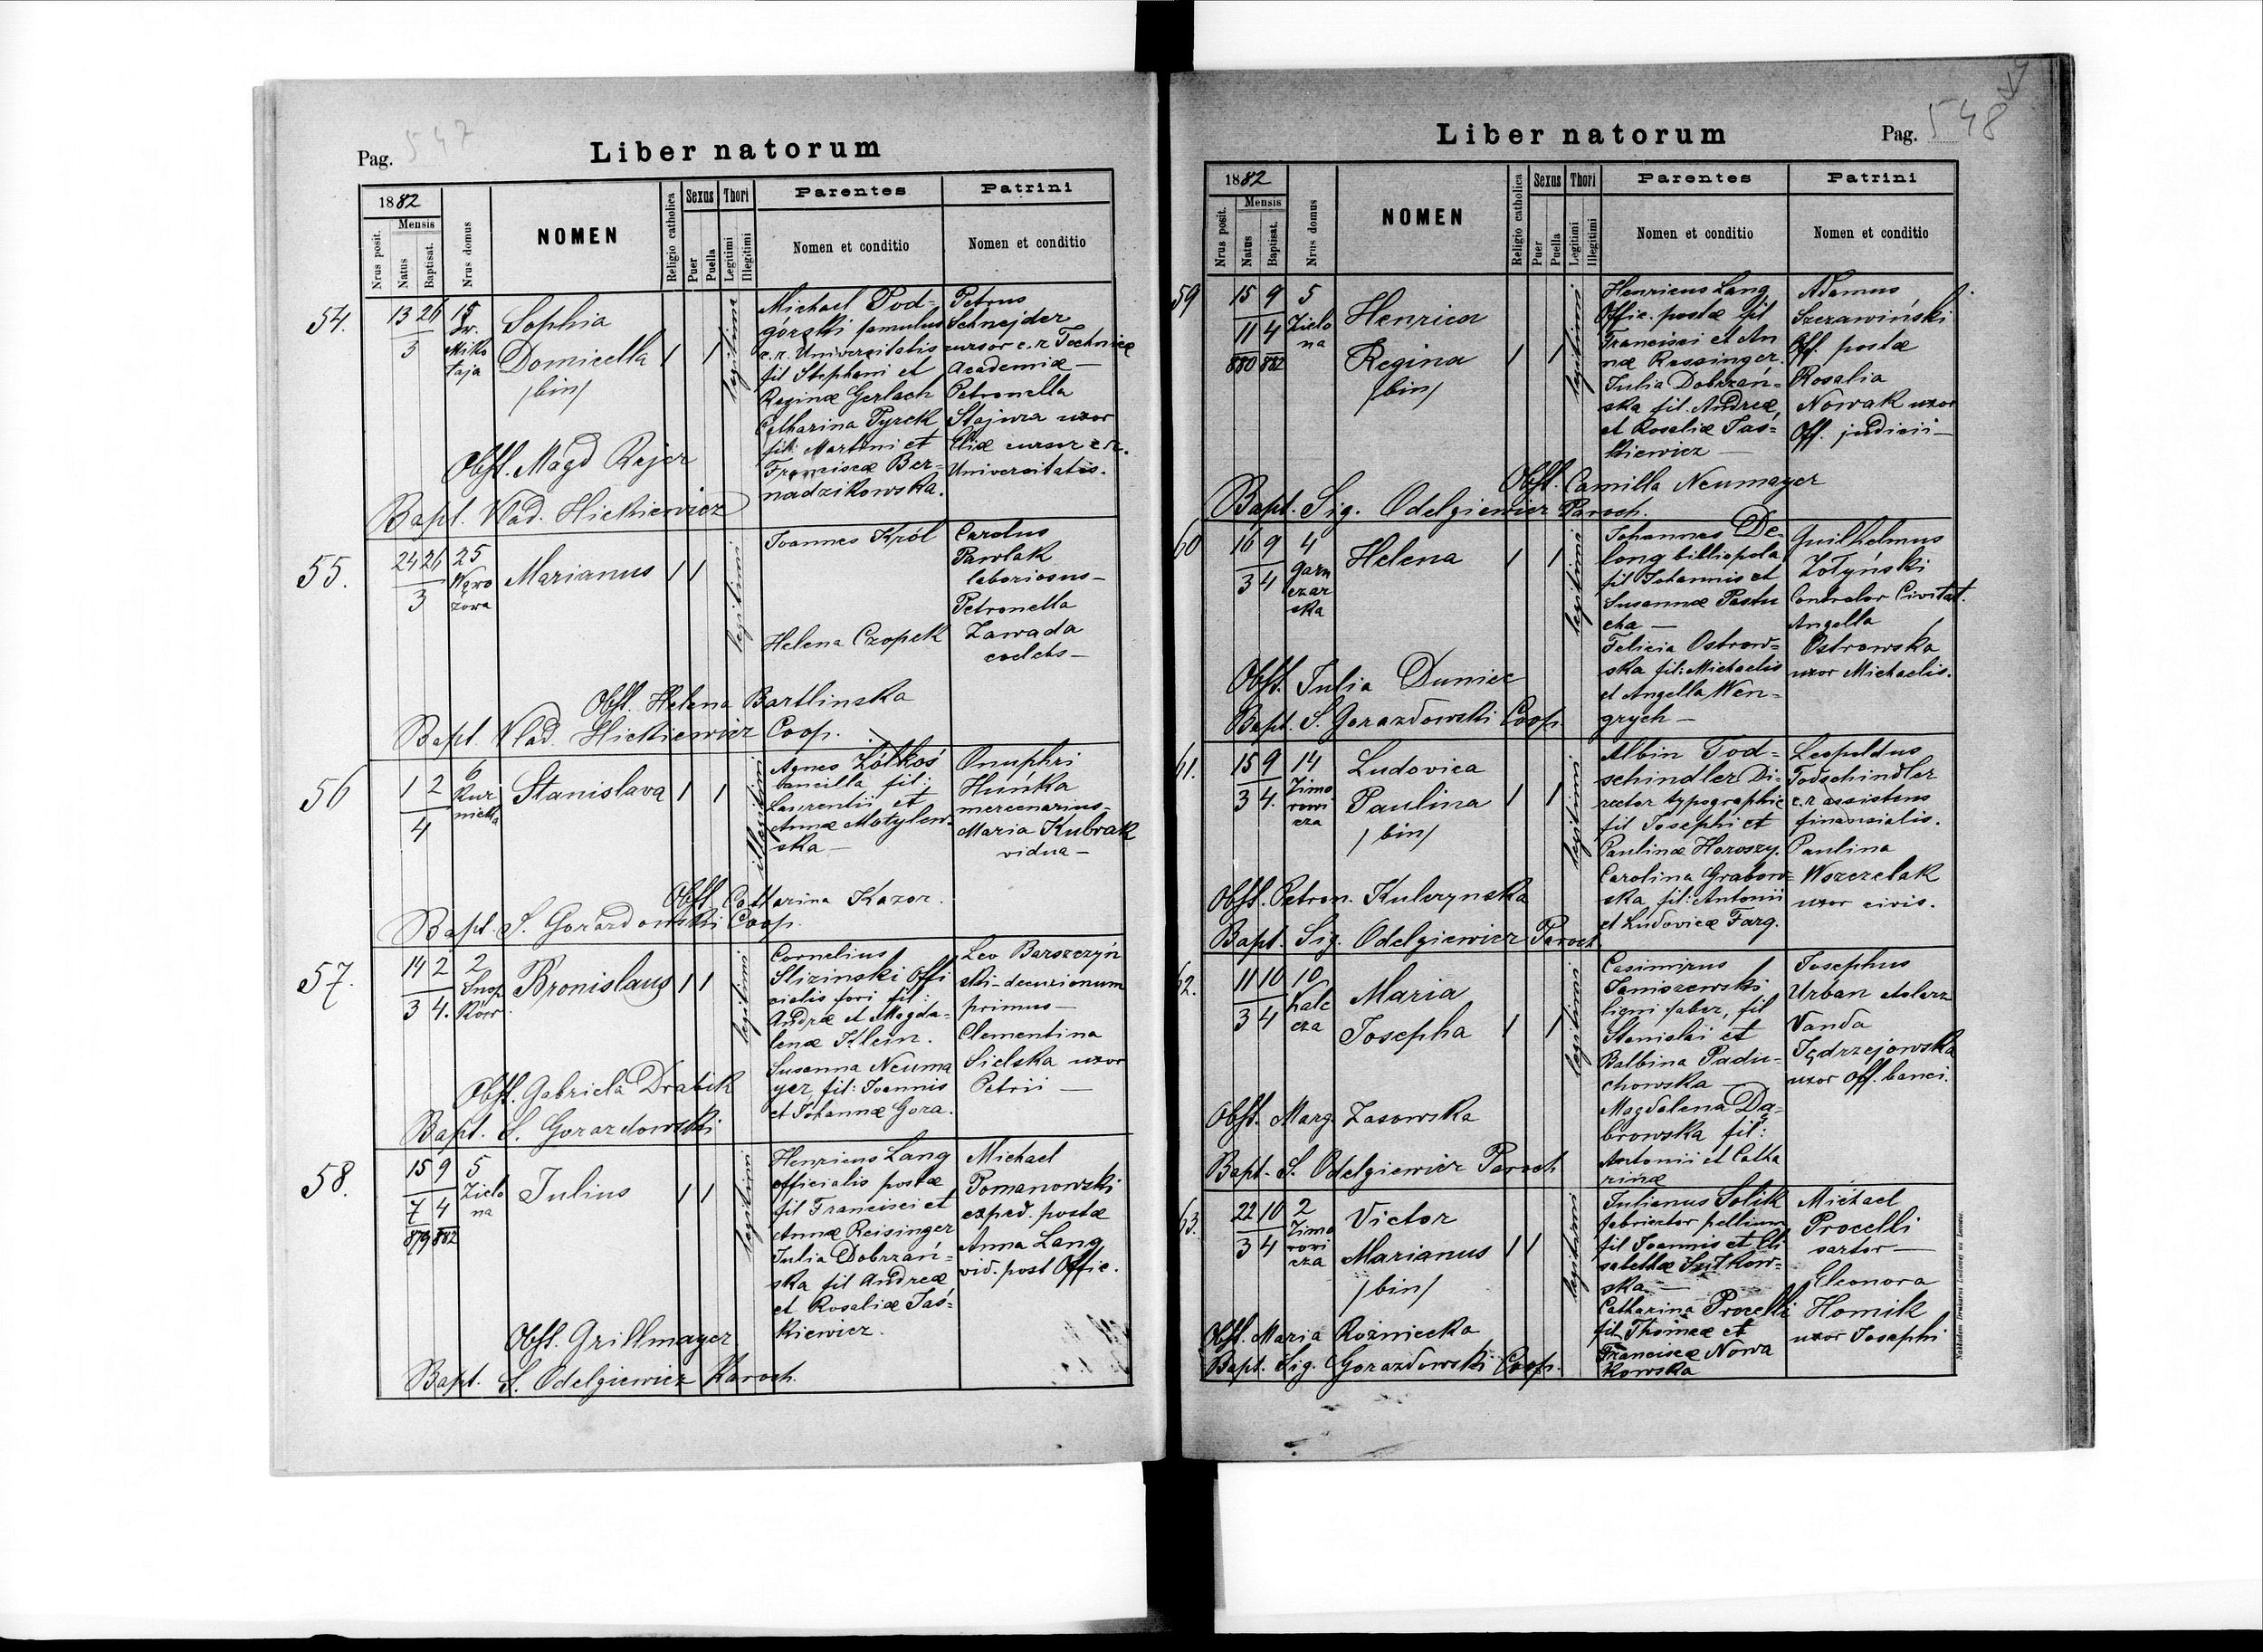 Pag. 547
Liber natorum
1882
Nrus posit.
Mensis
Natus
Baptisat.
Nrus domus
NOMEN
Religio catholica
Sexus
Puer
Puella
Thori
Legitimi
Illegitimi
Parentes
Nomen et conditio
Patrini
Nomen et conditio
54.
13 26
3
15
Św.
Miko
łaja
Sophia
Domicella
/bin/
1 1
legitima
Michael Pod=
górski famulus
c. r. Universitatis
fil Stephani et
Reginæ Gerlach
Catharina Pyrek
fil: Martini et
Franciscæ Ber=
nadzikowska.
Petrus
Schnejder
cursor c. r. Technicæ
Academiæ —
Petronella
Stajura uxor
Eliæ cursor c. r.
Universitatis.
Obst. Magd Rejer
Bapt. Vlad. Hickiewicz
55.
24 26
3
25
Wąwo
zowa
Marianus
1 1
legitimi
Joannes Król
Helena Czopek
Carolus
Pawlak
laboriosus —
Petronella
Zawada
coelebs —
Obst. Helena Bartlinska
Bapt. Vlad. Hickiewicz Coop.
56
1 2
4
6
Kur
nicka
Stanislava
1 1
illegitimi
Agnes Żółkoś
ancilla fil:
Laurentii et
Annæ Motylew=
ska —
Onuphri
Huńka
mercenarius —
Maria Kubrak
vidua —
Obst Catharina Kazor.
Bapt. S. Gorazdowski Coop.
57.
14 2
3 4.
2
Snop
ków
Bronislaus
1 1
legitimi
Cornelius
Slizinski Offi
cialis fori fil:
Andræ et Magda=
lenæ Klein.
Susanna Neuma
yer, fil: Joannis
et Johannæ Gora.
Leo Barszczyń
ski — decurionum
primus —
Clementina
Sielska uxor
Petrii —
Obst. Gabriela Drabik
Bapt. S. Gorazdowski
58.
15 9
7 4
879 882
5
Zielo
na
Julius
1 1
legitimi
Henricus Lang
officialis postæ
fil Francisci et
Annæ Reisinger
Julia Dobrzań=
ska fil Andreæ
et Rosaliæ Jaś=
kiewicz.
Michael
Pomanowski
exped. postæ
Anna Lang
vid. post Offic.
Obst. Grillmayer
Bapt. S. Odelgiewicz Paroch.
Liber natorum
Pag. 548
1882
Nrus posit.
Mensis
Natus
Baptisat.
Nrus domus
NOMEN
Religio catholica
Sexus
Puer
Puella
Thori
Legitimi
Illegitimi
Parentes
Nomen et conditio
Patrini
Nomen et conditio
59
15 9
11 4
880 882
5
Zielo
na
Henrica
Regina
/bin/
1 1
legitimi
Henricus Lang
Offic. postæ fil
Francisci et An
næ Ressinger.
Julia Dobrzań=
ska fil. Andreæ,
et Rosaliæ Jaś=
kiewicz —
Adamus
Szczawiński
Off. postæ
Rosalia
Nowak uxor
Off. judicii —
Obst. Camilla Neumayer
Bapt. Sig. Odelgiewicz Paroch.
60
16 9
3 4
4
Garn
czar
ska
Helena
1 1
legitimi
Johannes De=
long bibliopola
fil Johannis et
Susannæ Pastu
cha —
Felicia Ostrow=
ska fil: Michaelis
et Angella Wen=
grych —
Guilhelmus
Żołyński
Controlor Civitat.
Angella
Ostrowska
uxor Michaelis.
Obst. Julia Duniec
Bapt. S. Gorazdowski Coop
61.
15 9
3 4.
14
Zimo
rowi
cza
Ludovica
Paulina
/bin/
1 1
legitimi
Albin Tod=
schindler Di=
rector typographiæ
fil Josephi et
Paulinæ Horoszy.
Carolina Grabow=
ska fil: Antonii
et Ludovicæ Farg.
Leopoldus
Todschindler
c. r assistens
finansialis.
Paulina
Wszczelak
uxor civis.
Obst. Petron. Kulczynska
Bapt. Sig. Odelgiewicz Paroch
62.
11 10
3 4
10
Kale
cza
Maria
Josepha
1 1
legitimi
Casimirus
Janiszewski
ligni faber, fil
Stanislai et
Balbina Padu=
chowska —
Magdalena Dą=
browska fil:
Antonii et Catha
rinæ
Josephus
Urban
Vanda
Jędrzejowska
uxor Off. banci.
Obst. Marg. Zasowska
Bapt. S. Odelgiewicz Paroch
63.
22 10
3 4
2
Zimo
rowi
cza
Victor
Marianus
/bin/
1 1
legitimi
Julianus Solik
fabricator pellium
fil Joannis et Eli
sabethæ Sutkow=
ska —
Catharina Procelli
fil Thomæ et
Franciscæ Nowa
kowska
Michael
Procelli
sartor —
Eleonora
Homik
uxor Josephi
Obst. Maria Rożniecka
Bapt. Sig. Gorazdowski Coop.
Nakładem Drukarni Ludowej we Lwowie.